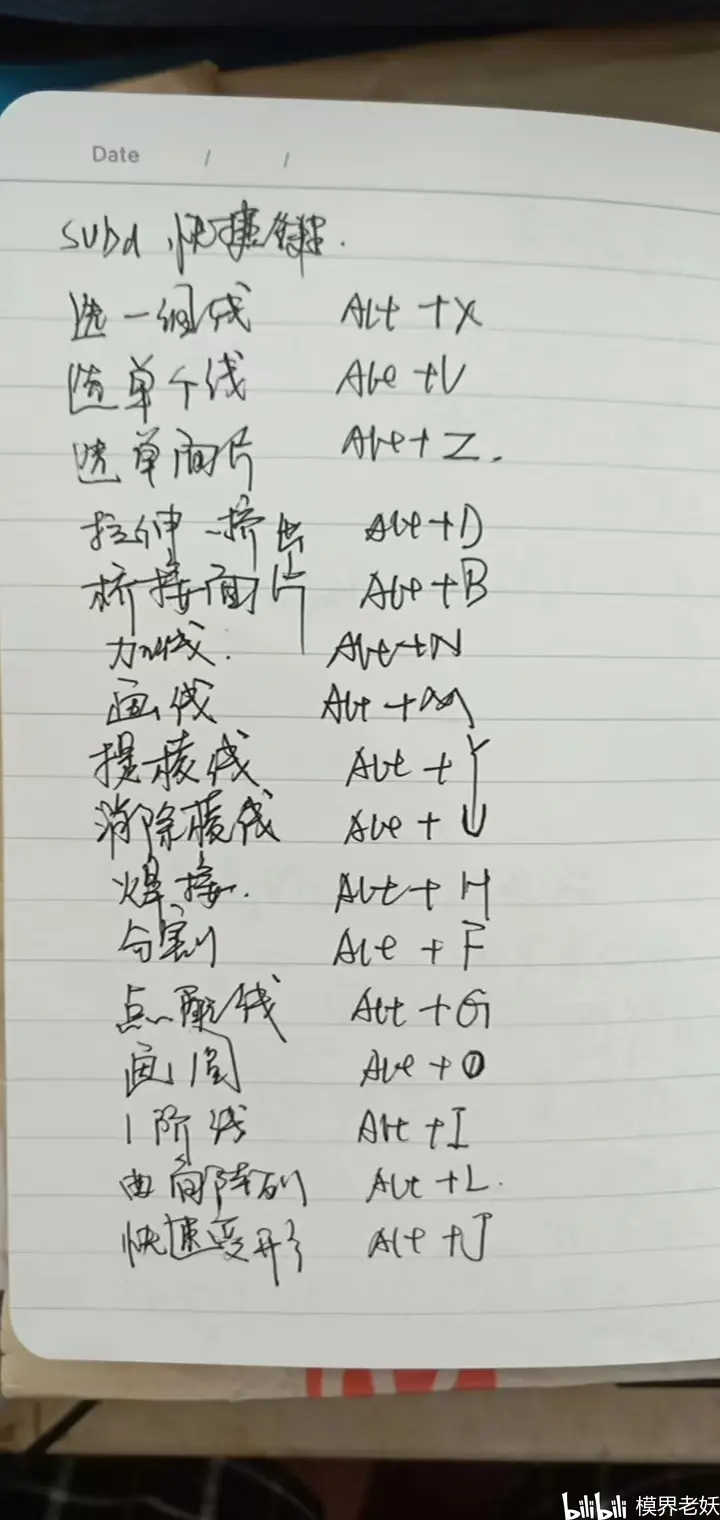 Date / /
subd 快捷键.
选一组线 Alt + X
选单个线 Alt + V
选单面片 Alt + Z.
拉伸 挤出 Alt + D
桥接面片 Alt + B
加线. Alt + N
画线 Alt + M
提棱线 Alt + Y
消除棱线 Alt + U
焊接. Alt + H
分割 Alt + F
点 线 Alt + G
画圆 Alt + O
1阶线 Alt + I
曲面阵列 Alt + L.
快速变形 Alt + J
bilibili 模界老妖